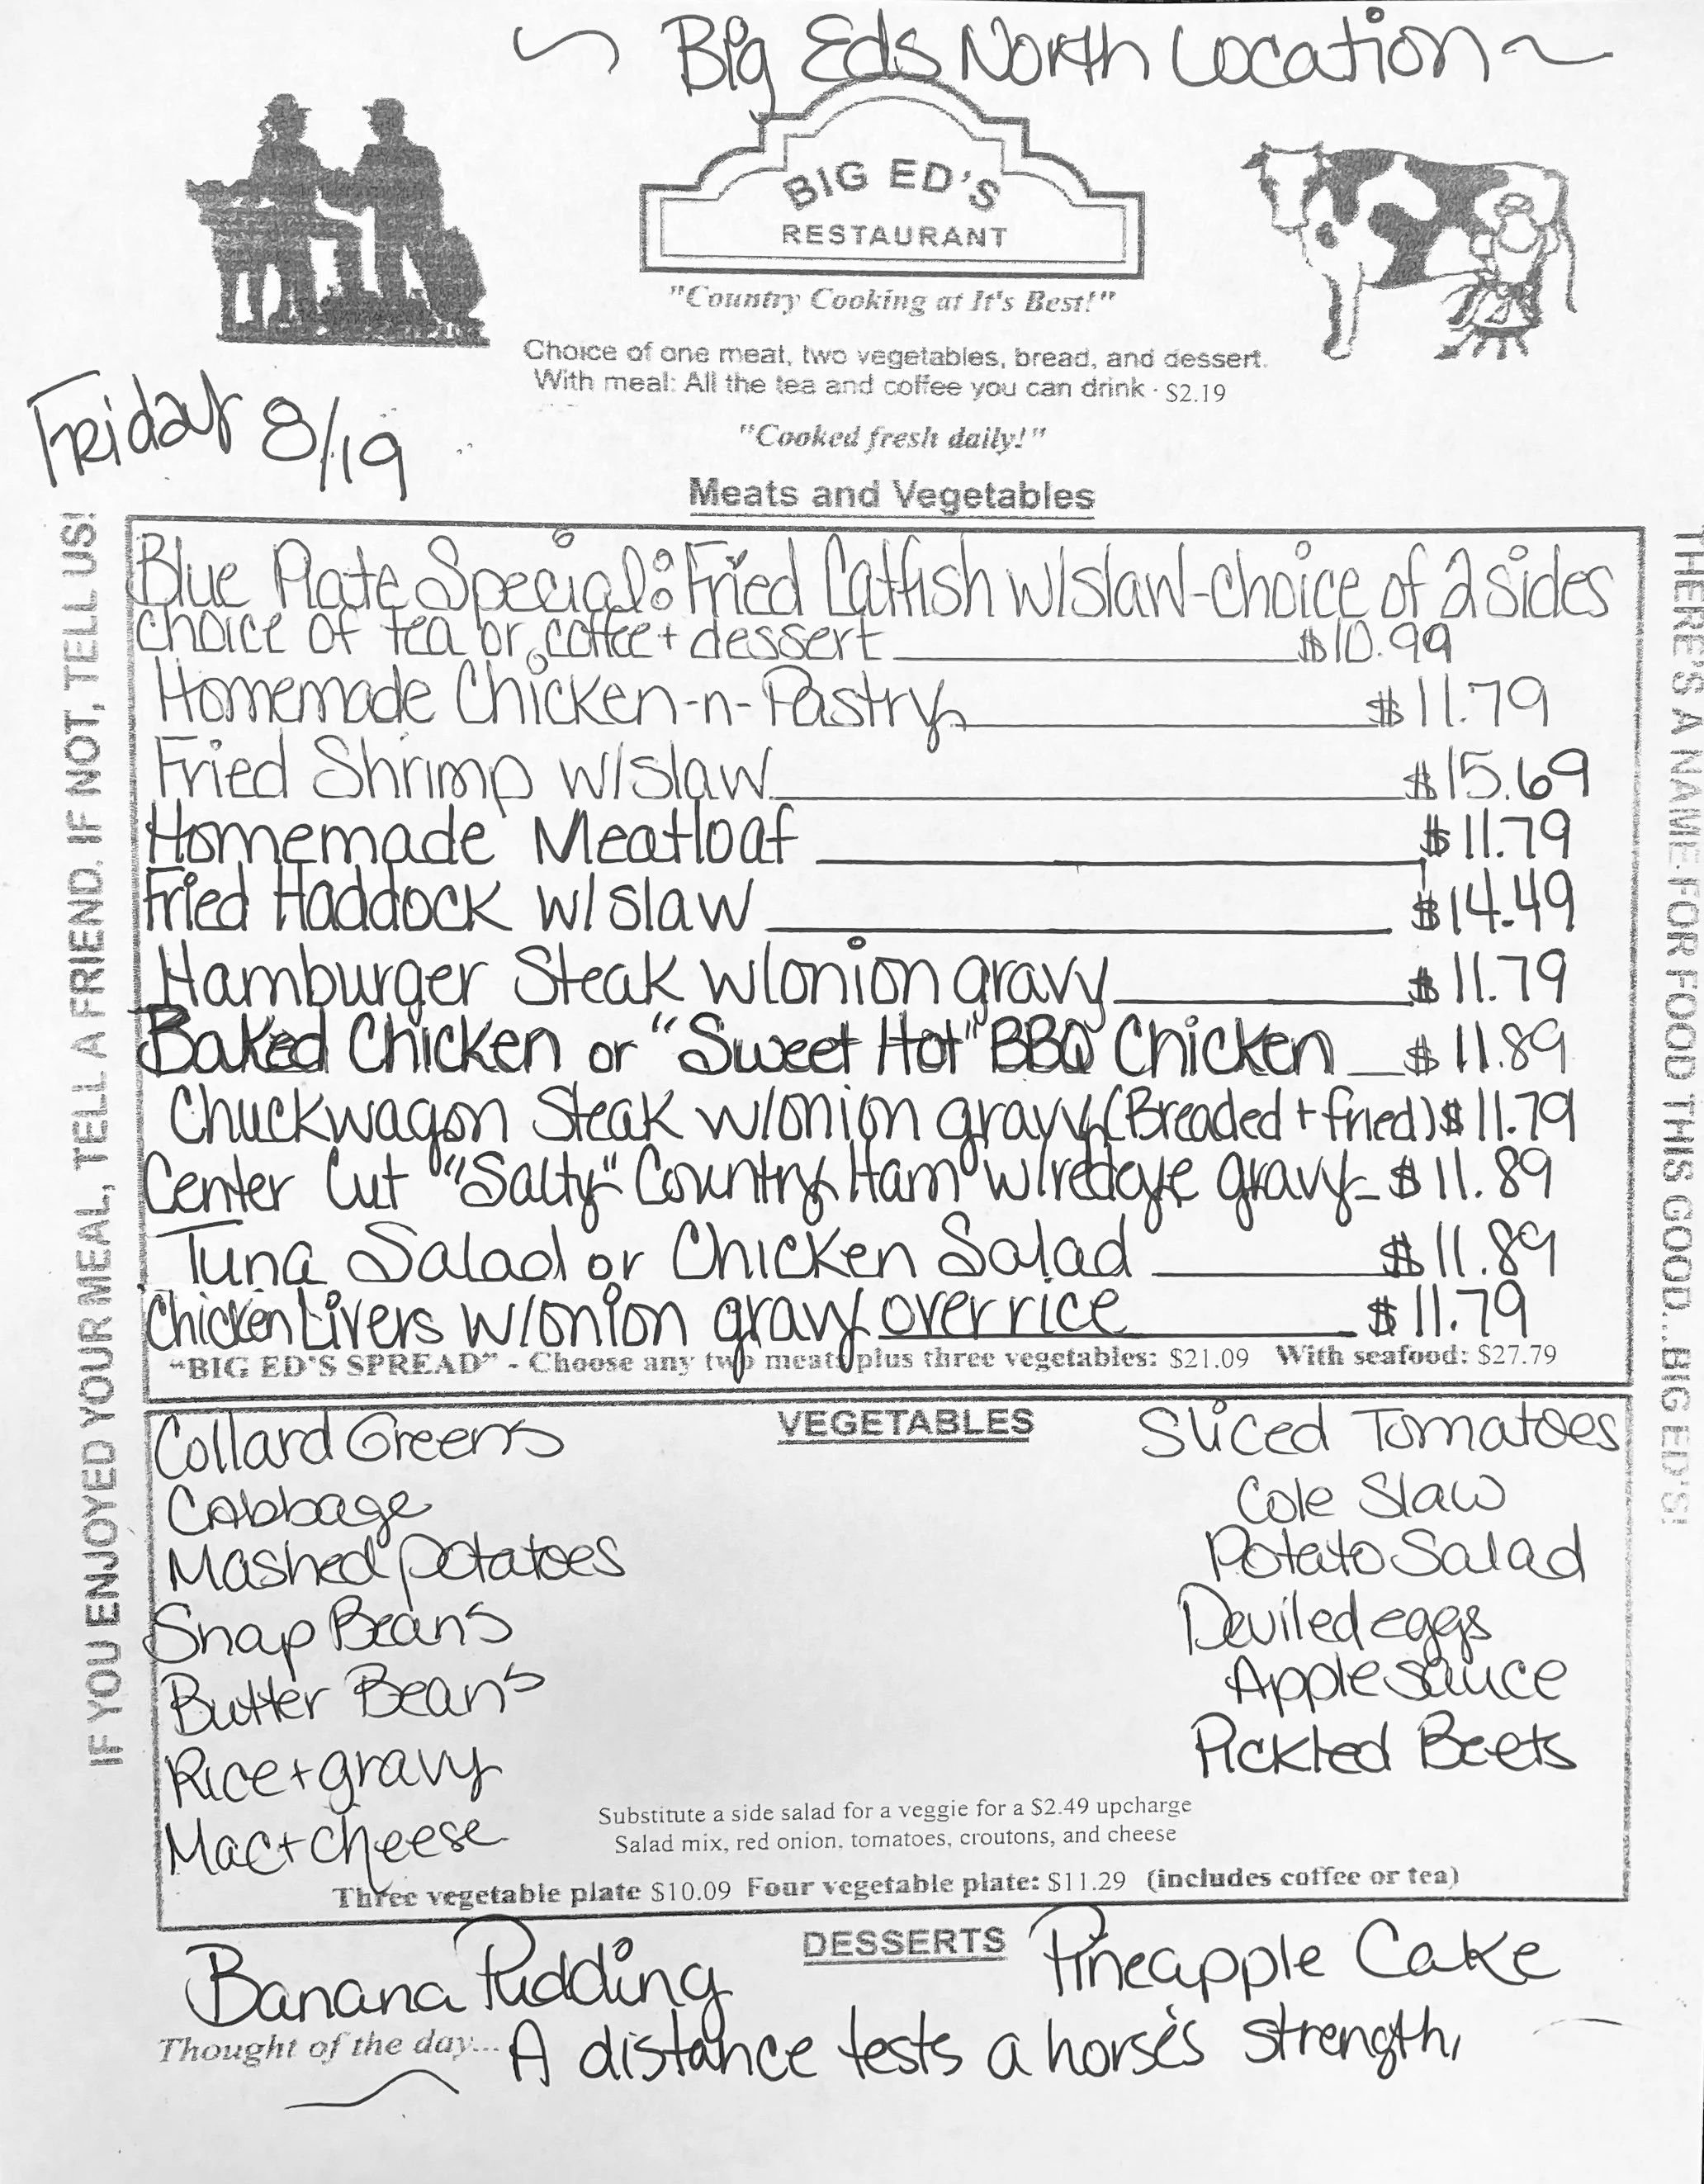 ~ Big Eds North Location ~
BIG ED'S
RESTAURANT
"Country Cooking at It's Best!"
Choice of one meat, two vegetables, bread, and dessert.
With meal: All the tea and coffee you can drink · $2.19
Friday 8/19
"Cooked fresh daily!"
Meats and Vegetables
IF YOU ENJOYED YOUR MEAL, TELL A FRIEND. IF NOT, TELL US!
THERE'S A NAME FOR FOOD THIS GOOD...BIG ED'S!
Blue Plate Special: Fried Catfish w/slaw-choice of 2 sides
choice of tea or coffee + dessert $10.99
Homemade Chicken-n-Pastry $11.79
Fried Shrimp w/slaw $15.69
Homemade Meatloaf $11.79
Fried Haddock w/slaw $14.49
Hamburger Steak w/onion gravy $11.79
Baked Chicken or "Sweet Hot" BBQ Chicken $11.89
Chuckwagon Steak w/onion gravy (Breaded + fried) $11.79
Center Cut "Salty" Country Ham w/redeye gravy $11.89
Tuna Salad or Chicken Salad $11.89
Chicken Livers w/onion gravy over rice $11.79
"BIG ED'S SPREAD" - Choose any two meats plus three vegetables: $21.09 With seafood: $27.79
VEGETABLES
Collard Greens
Cabbage
Mashed potatoes
Snap Beans
Butter Beans
Rice + gravy
Mac + cheese
Sliced Tomatoes
Cole Slaw
Potato Salad
Deviled eggs
Apple sauce
Pickled Beets
Substitute a side salad for a veggie for a $2.49 upcharge
Salad mix, red onion, tomatoes, croutons, and cheese
Three vegetable plate $10.09 Four vegetable plate: $11.29 (includes coffee or tea)
DESSERTS
Banana Pudding
Pineapple Cake
Thought of the day... A distance tests a horse's strength,